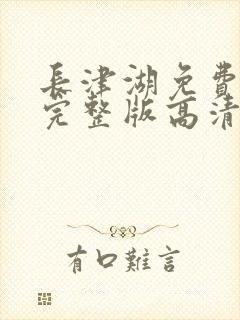 長津湖免費
完整版高清
有口難言